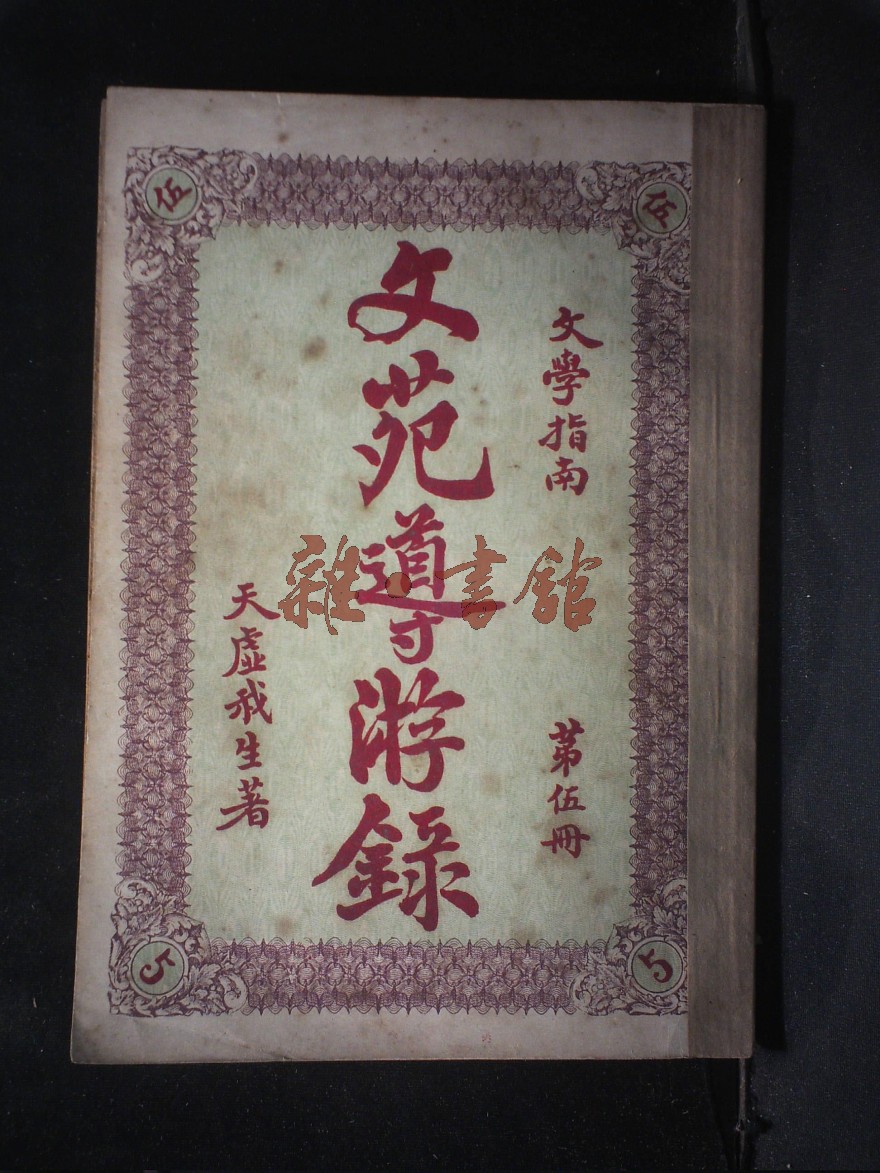 伍
伍
文學指南
第伍冊
文苑導游錄
天虛我生著
雜·書館
5
5